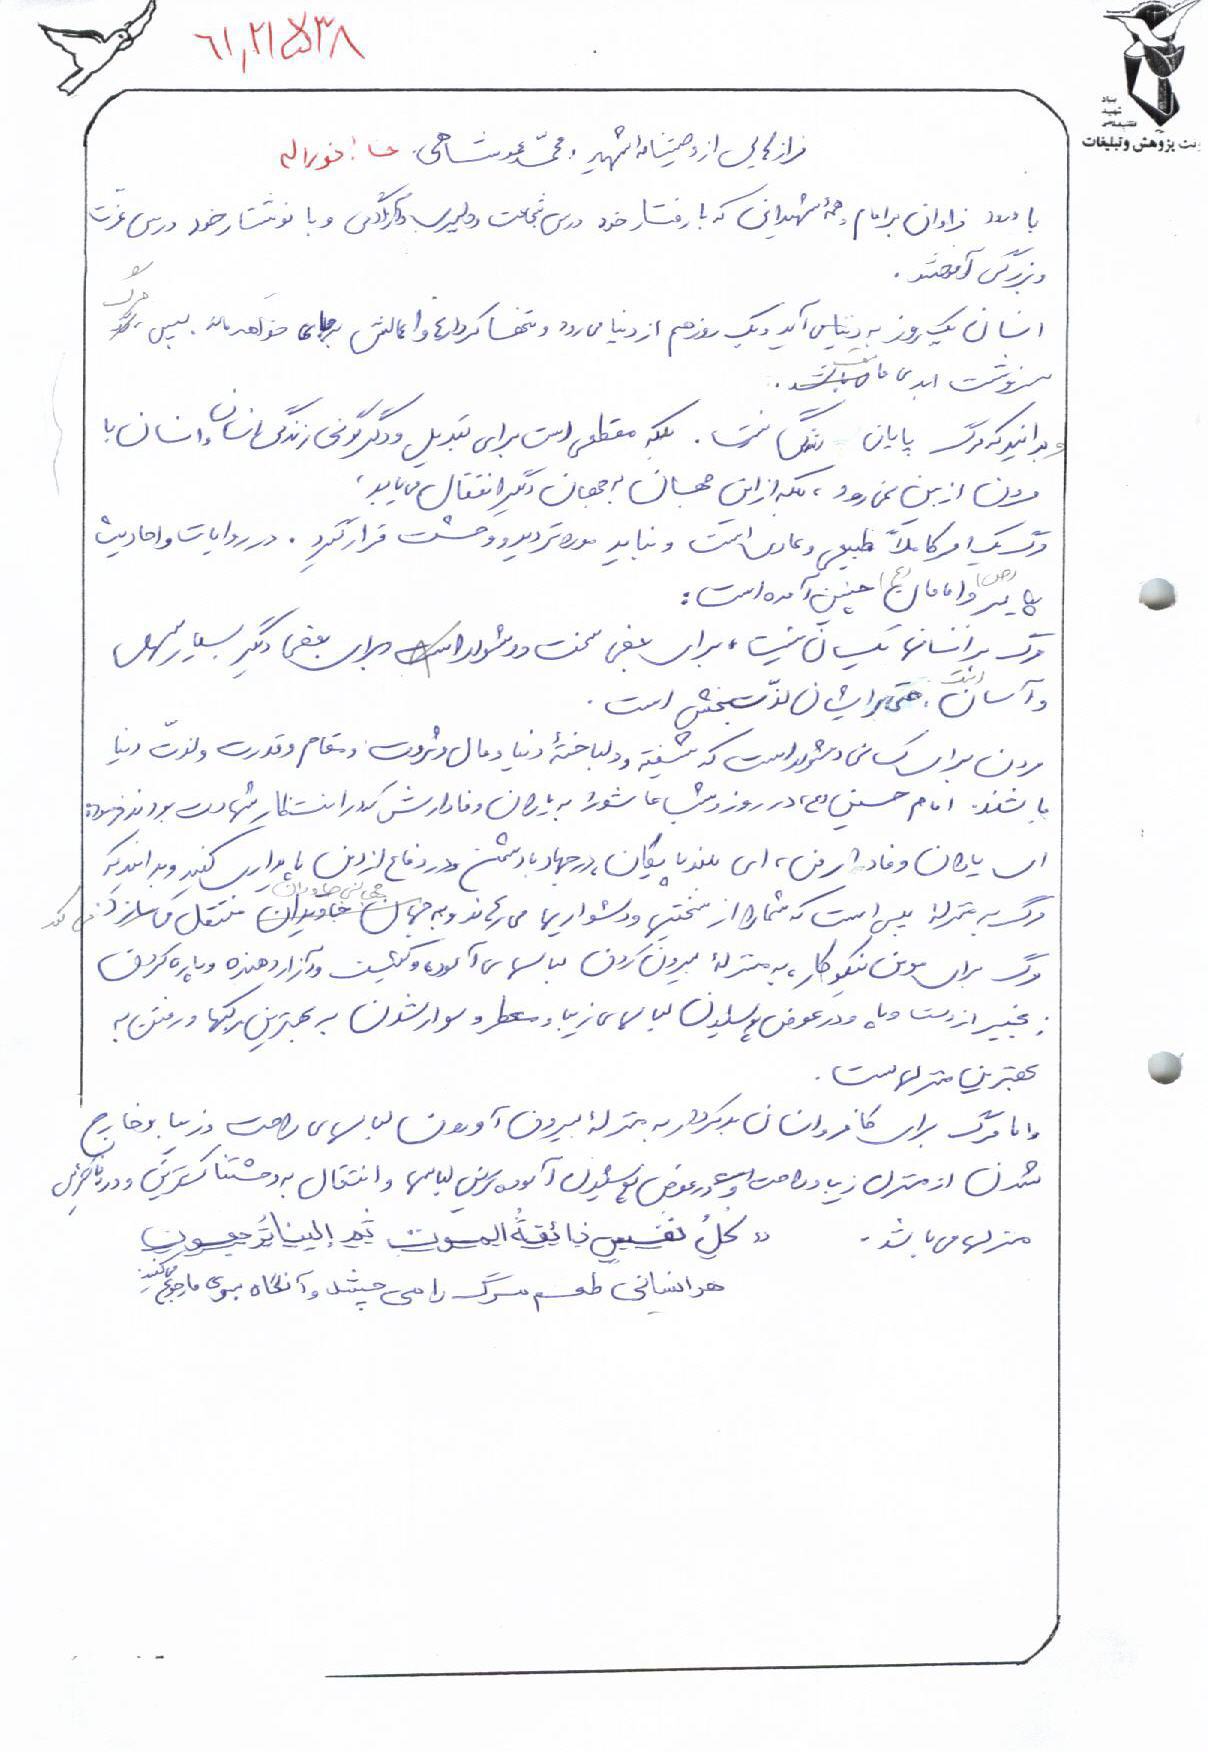 ۶۱,۲۱۵۳۸
بنیاد
شهید
انقلاب اسلامی
پژوهش و تبلیغات
فرازهایی از وصیتنامه شهید، محمد
با درود فراوان بر امام و همهٔ شهیدانی که با رفتار خود درس شجاعت و دلیری و آزادگی و با نوشتار خود درس عزّت
و بزرگی آموختند.
انسان یک روز به دنیا می آید و یک روز هم از دنیا می رود و تنها کردارها و اعمالش برجای خواهد ماند. پس، مرگ
سرنوشت ابدی ما
و بدانید که مرگ پایان زندگی نیست. بلکه مقطعی است برای تبدیل و دگرگونی زندگی انسان و انسان با
مردن از بین نمی رود، بلکه از این جهان به جهان دیگر انتقال می یابد،
مرگ یک امر کاملاً طبیعی و عادی است و نباید مورد تردید و وحشت قرار گیرد. در روایات و احادیث
پیامبر (ص) و امامان (ع) چنین آمده است:
مرگ بر انسانها یکسان نیست، برای بعضی سخت و دشوار است و برای بعضی دیگر بسیار سهل
و آسان است، حتی برایشان لذّت بخش است.
مردن برای کسانی دشوار است که شیفته و دلباختهٔ دنیا و مال و ثروت و مقام و قدرت و لذّت دنیا
باشند. امام حسین (ع) در روز و شب عاشورا به یاران وفادارش که در انتظار شهادت بودند فرمود:
ای یاران وفادار من، ای بلند پایگان، در جهاد با دشمن و در دفاع از دین پایداری کنید و بدانید که
مرگ به منزلهٔ پلی است که شما را از سختیها و دشواریها می رهاند و به جهان جاویدان منتقل می سازد
مرگ برای مؤمن نیکوکار، به منزلهٔ بیرون کردن لباسهای آلوده و کثیف و آزار دهنده و پاره کردن
زنجیر از دست و پا و در عوض پوشیدن لباسهای زیبا و معطر و سوار شدن به بهترین مرکبها و رفتن به
بهترین منزلهاست.
و اما مرگ برای کافر و انسان بدکردار به منزلهٔ بیرون آوردن لباسهای راحت و زیبا و خارج
شدن از منزل زیبا و راحت و در عوض پوشیدن آلوده ترین لباسها و انتقال به وحشتناکترین و
منزلها می باشد. «کلُّ نفسٍ ذائقةُ الموت ثم إلینا ترجعون
هر انسانی طعم مرگ را می چشد و آنگاه بسوی ما رجوع می کنید